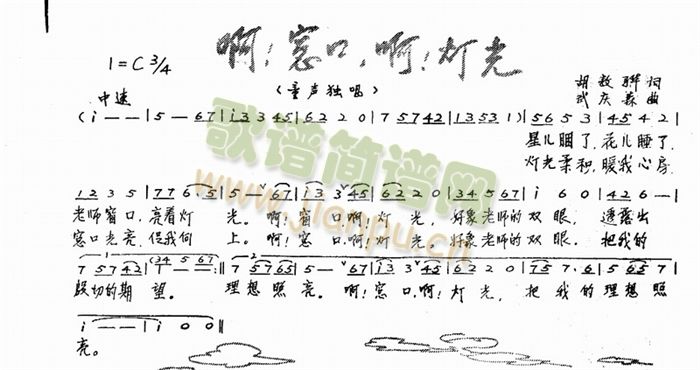 啊！窓口，啊！灯光
1=C 3/4
（童声独唱）
胡敦骅 词
武庆森 曲
中速
(i — — | 5 — 67 | i3 3 45 | 62 2 0 | 7 57 42 | 13 53 1) | 56 5 3 | 45 4 2 |
星儿睏了，花儿睡了，
灯光柔和，暖我心房，
12 3 5 | 77 6. 5 | 5 — 67 | i3 3 45 | 62 2 0 | 34 5 67 | i 6 0 | 42 6 — |
老师窗口，亮着灯光。啊！窗口啊！灯光，好象老师的双眼，透露出
窓口光亮，促我向上。啊！窓口，啊！灯光。好象老师的双眼，把我的
7 57 42 | (34 5 67 :|| 7 57 65 | 5 — 67 | i3 3 45 | 62 2 0 | 75 7. 6 | 5 65 7 |
殷切的期望。理想照亮。啊！窓口，啊！灯光，把我的理想照
i — — | i 0 0 ||
亮。
歌谱简谱网
www.jianpu.cn